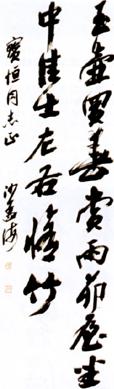 玉壶买春赏雨茆屋坐
中佳士左右脩竹
宝恒同志正
沙孟海